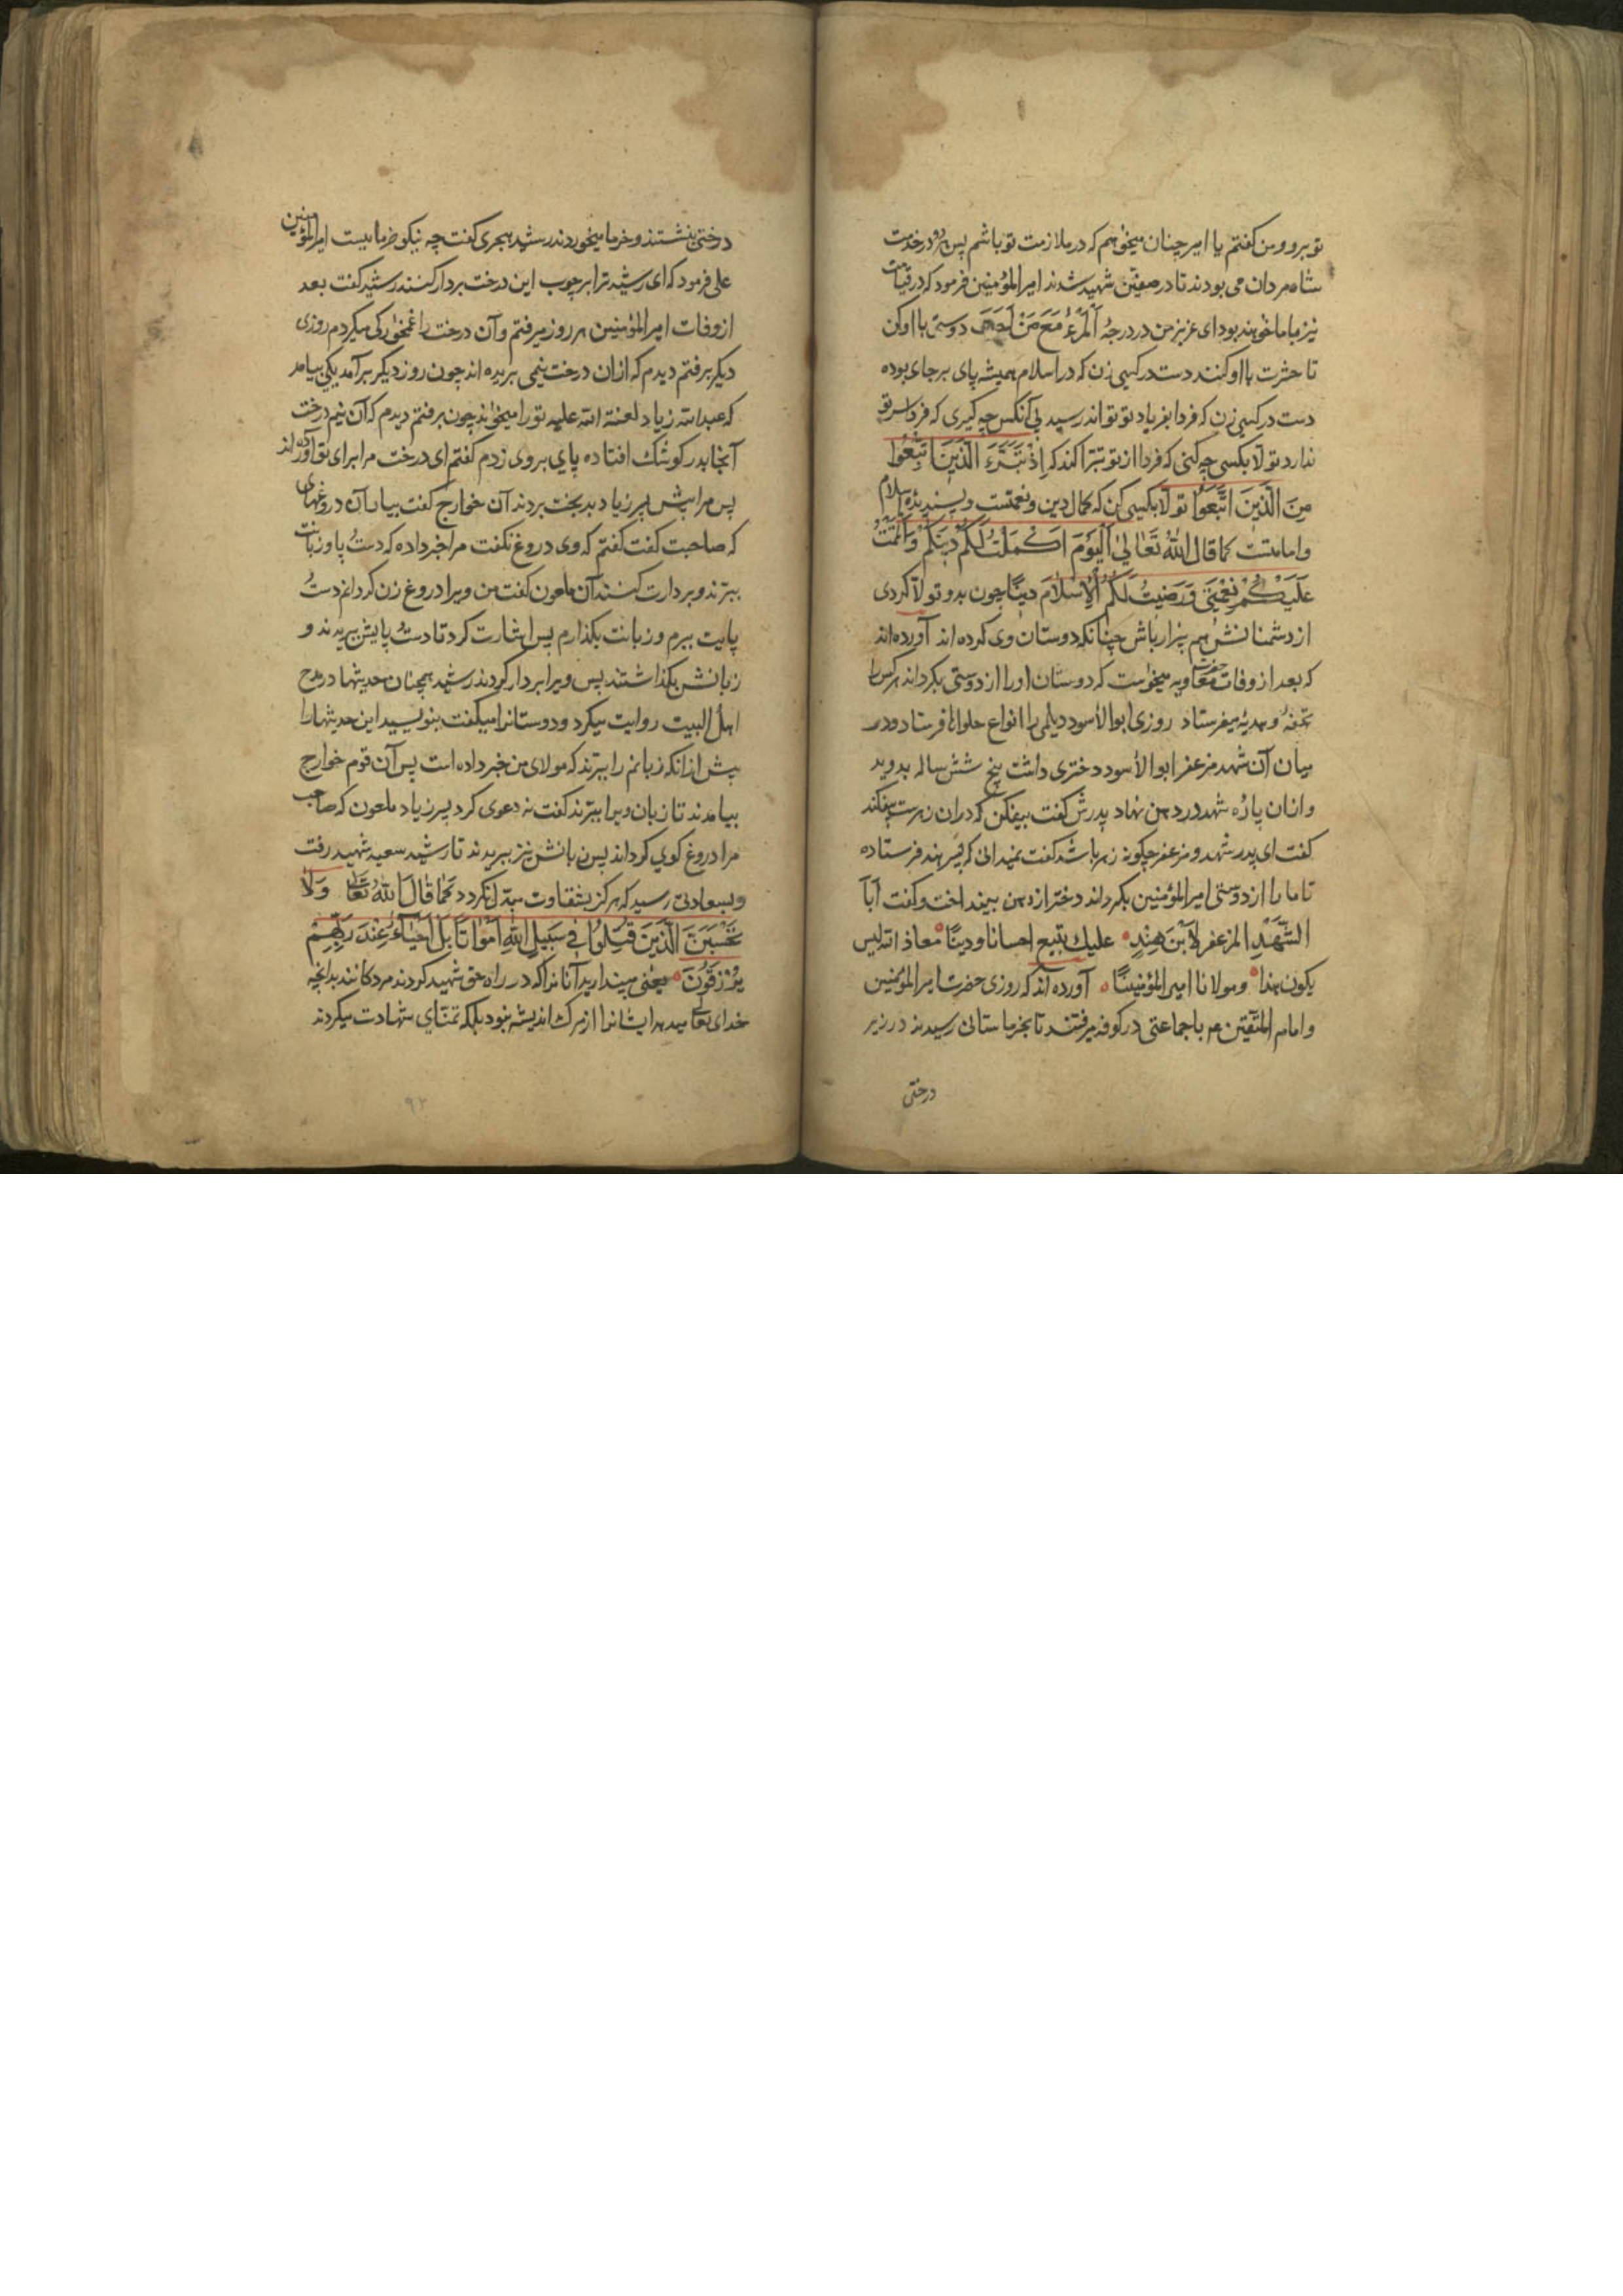 تو برو و من کفتم یا امیر چنان میخواهم که در ملازمت تو باشم پس هر دو در خدمت
شاه مردان می بودند تا در صفین شهید شدند امیرالمؤمنین فرمود که در قیامت
نیز با ما خواهند بود ای عزیز من در درجهٔ اَلْمَرْءُ مَعَ مَنْ اَحَبَّ دوستی با او کن
تا حشرت با او کنند دست در کسی زن که در اسلام همیشه پای بر جای بوده
دست در کسی زن که فردا بفریاد تو تواند رسید پی آنکس چه کیری که فردا سر تو
ندارد تولّا بکسی چه کنی که فردا از تو تبرّا کند که اِذْ تَبَرَّءَ الَّذینَ اتُّبِعُوا
مِنَ الَّذینَ اتَّبَعُوا تولّا بکسی کن که کمال دین و نعمتست و پسندیدهٔ اسلام
و امامتست کما قال اللهُ تَعَالیٰ اَلْیَوْمَ اَکْمَلْتُ لَکُمْ دینَکُمْ وَاَتْمَمْتُ
عَلَیْکُمْ نِعْمَتی وَرَضیتُ لَکُمُ الْاِسْلَامَ دینًا چون بدو تولّا کردی
از دشمنانش هم بیزار باش چنانکه دوستان وی کرده اند آورده اند
که بعد از وفات حضرت معاویه میخواست که دوستان او را از دوستی بکرداند هر کس را
تحفهٔ و هدیهٔ میفرستاد روزی ابوالاسود دیلمی را انواع حلواها فرستاد و در
میان آن شهد مزعفر ابوالاسود دختری داشت پنج شش ساله بدوید
و از ان پارهٔ شهد در دهن نهاد پدرش کفت بیفکن که در ان زهرست بیفکند
کفت ای پدر شهد و مزعفر چکونه زهر باشد کفت نمیدانی که پسر هند فرستاده
تا ما را از دوستی امیرالمؤمنین بکرداند دختر از دهن بینداخت و کفت اَبَا
الشَّهْدِ المزعفر لابْنَ هِنْدٍ علیك نبیع احسانا و دینًا معاذ الله لیس
یکون هذا و مولانا امیر المؤمنینا آورده اند که روزی حضرت امیرالمؤمنین
و امام المتّقین عم با جماعتی در کوفه میرفتند تا بخرماستانی رسیدند در زیر
درختی
درختی بنشستند و خرما میخوردند رشید هجری کفت چه نیکو خرماییست امیرالمؤمنین
علی فرمود که ای رشید ترا بر چوب این درخت بردار کنند رشید کفت بعد
از وفات امیرالمؤمنین هر روز میرفتم و آن درخت را غمخوارکی میکردم روزی
دیکر برفتم دیدم که از ان درخت نیمی بریده اند چون روز دیکر برآمد یکی بیامد
که عبدالله زیاد لعنة الله علیه تو را میخواند چون برفتم دیدم که آن نیم درخت
آنجا بدر کوشك افتاده پای بر وی زدم کفتم ای درخت مرا برای تو آورده اند
پس مرا پیش پسر زیاد بدبخت بردند آن خوارج کفت بیار آن دروغهای
که صاحبت کفت کفتم که وی دروغ نکفت مرا خبر داده که دست و پا و زبانت
ببرّند و بردارت کنند آن ملعون کفت من ویرا دروغ زن کردانم دست و
پایت ببرم و زبانت بکذارم پس اشارت کرد تا دست و پایش ببریدند و
زبانش بکذاشتند پس ویرا بردار کردند رشید همچنان حدیثها در مدح
اهل البیت روایت میکرد و دوستانرا میکفت بنویسید این حدیثها را
پیش از انکه زبانم را ببرّند که مولای من خبر داده است پس آن قوم خوارج
بیامدند تا زبان ویرا ببرّند کفت نه دعوی کرد پسر زیاد ملعون که صاحب
مرا دروغ کوی کرداند پس زبانش نیز ببریدند تا رشید سعید شهید رفت
و بسعادتی رسید که هرکز بشقاوت مبدّل نکردد کَمَا قَالَ اللهُ تَعَالیٰ وَلَا
تَحْسَبَنَّ الَّذینَ قُتِلُوا فی سَبیلِ اللهِ اَمْوَاتًا بَلْ اَحْیَاءٌ عِنْدَ رَبِّهِمْ
یُرْزَقُونَ یعنی مپندارید آنانرا که در راه حق شهید کردند مردکانند بدانچه
خدای تعالی میدهد ایشانرا از مرك اندیشه نبود بلکه تمنّای شهادت میکردند
۹۲